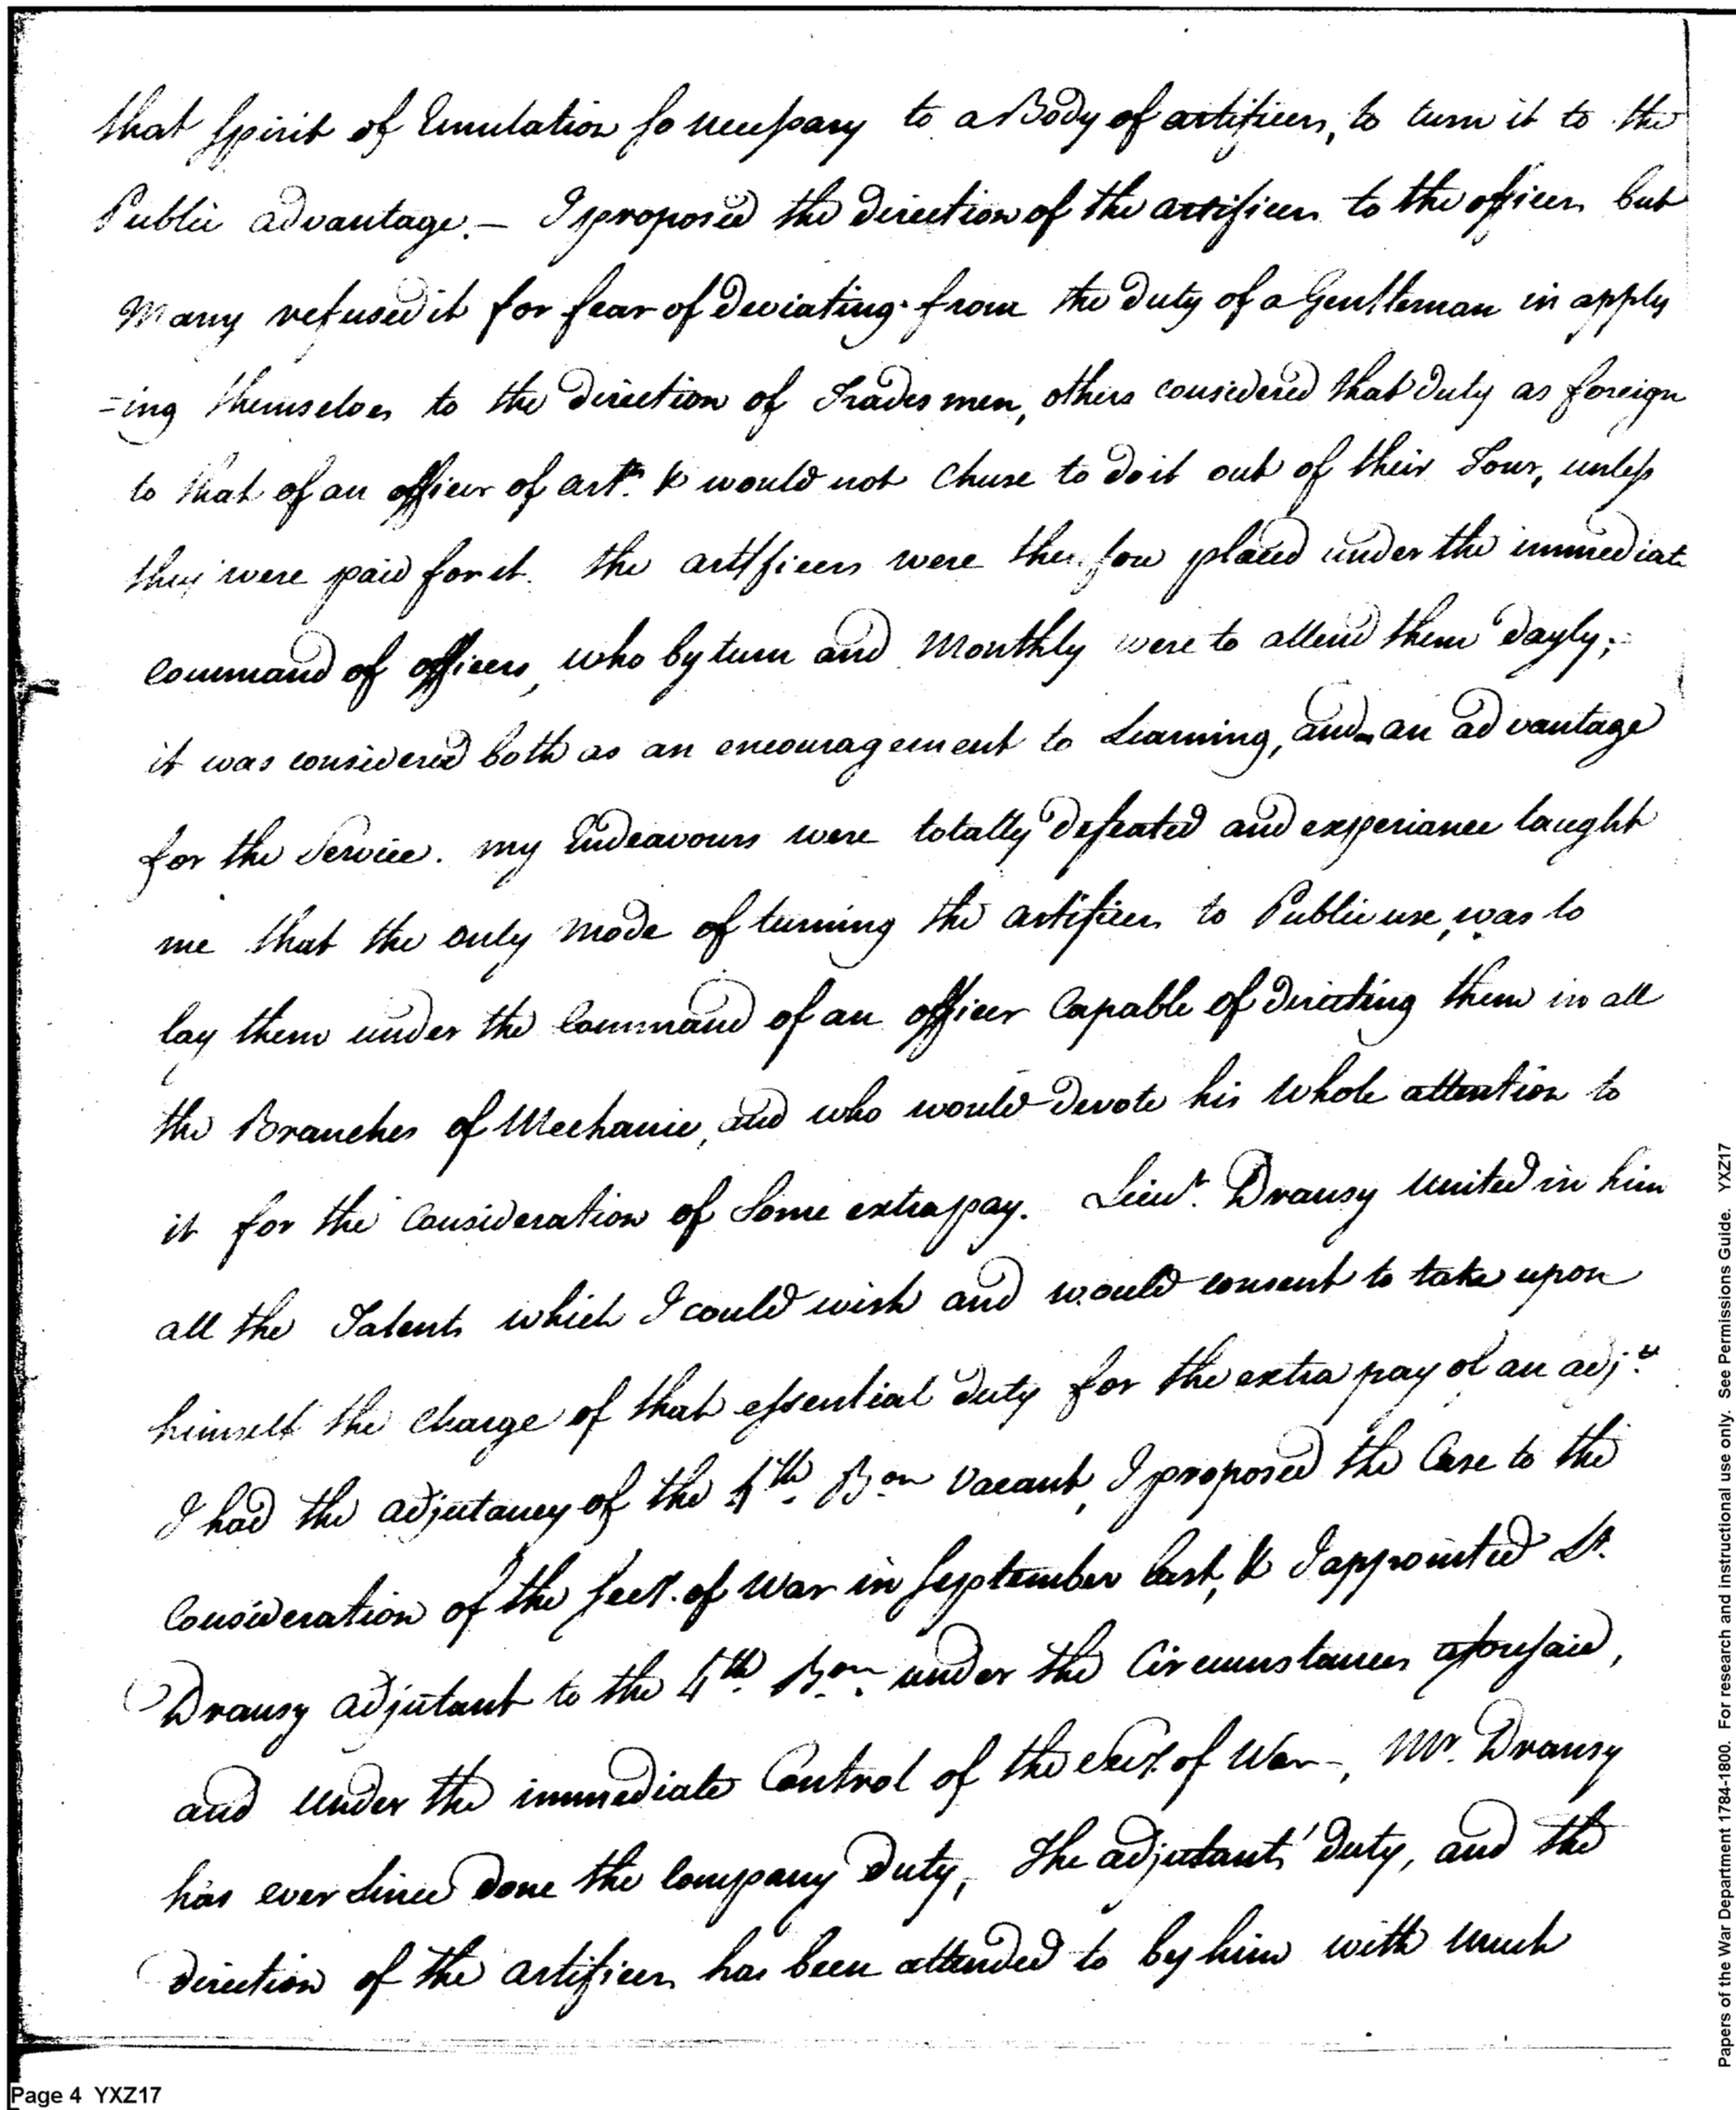 that Spirit of Emulation so necessary to a Body of artificers, to turn it to the
Public advantage. — I proposed the direction of the artificers to the officers but
Many refused it for fear of deviating from the duty of a Gentleman in apply
=ing themselves to the direction of Trades men, others considered that duty as foreign
to that of an officer of art.y & would not Chuse to do it out of their Tour, unless
they were paid for it. the artificers were therefore placed under the immediate
Command of officers, who by turn and Monthly were to attend them dayly;
it was considered both as an encouragement to Learning, and an advantage
for the Service. my Endeavours were totally defeated and experiance taught
me that the only mode of turning the artificers to Public use, was to
lay them under the Command of an officer Capable of directing them in all
the Branches of Mechanic, and who would devote his whole attention to
it for the Consideration of Some extra pay. Lieut. Dransy United in him
all the Talents which I could wish and would consent to take upon
himself the Charge of that essential duty for the extra pay of an adj.t
I had the adjutancy of the 4th Bon Vacant, I proposed the Case to the
Consideration of the Secy. of War in September last, & I appointed Lt.
Dransy adjutant to the 4th Bon. under the Circumstances aforesaid,
and under the immediate Control of the Secy. of War —, Mr. Dransy
has ever Since done the Company Duty, The adjutant's Duty, and the
direction of the artificers has been attended to by him with much
Page 4 YXZ17
Papers of the War Department 1784-1800. For research and instructional use only. See Permissions Guide. YXZ17